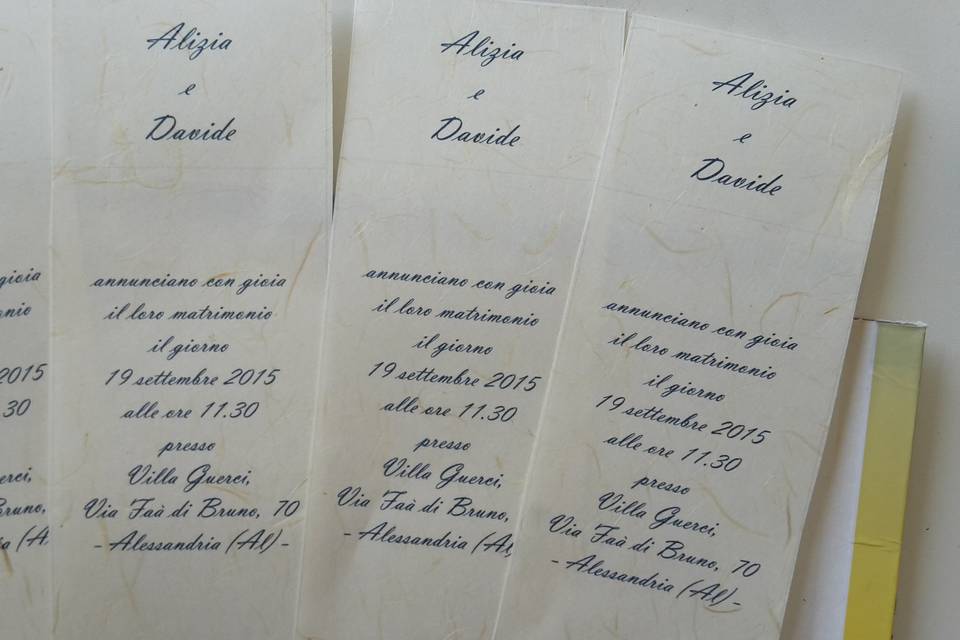 gioia
2015
30
Alizia
e
Davide
annunciano con gioia
il loro matrimonio
il giorno
19 settembre 2015
alle ore 11.30
presso
Villa Guerci,
Via Faà di Bruno, 70
- Alessandria (Al) -
Alizia
e
Davide
annunciano con gioia
il loro matrimonio
il giorno
19 settembre 2015
alle ore 11.30
presso
Villa Guerci,
Via Faà di Bruno,
- Alessandria (Al)
Alizia
e
Davide
annunciano con gioia
il loro matrimonio
il giorno
19 settembre 2015
alle ore 11.30
presso
Villa Guerci,
Via Faà di Bruno, 70
- Alessandria (Al) -